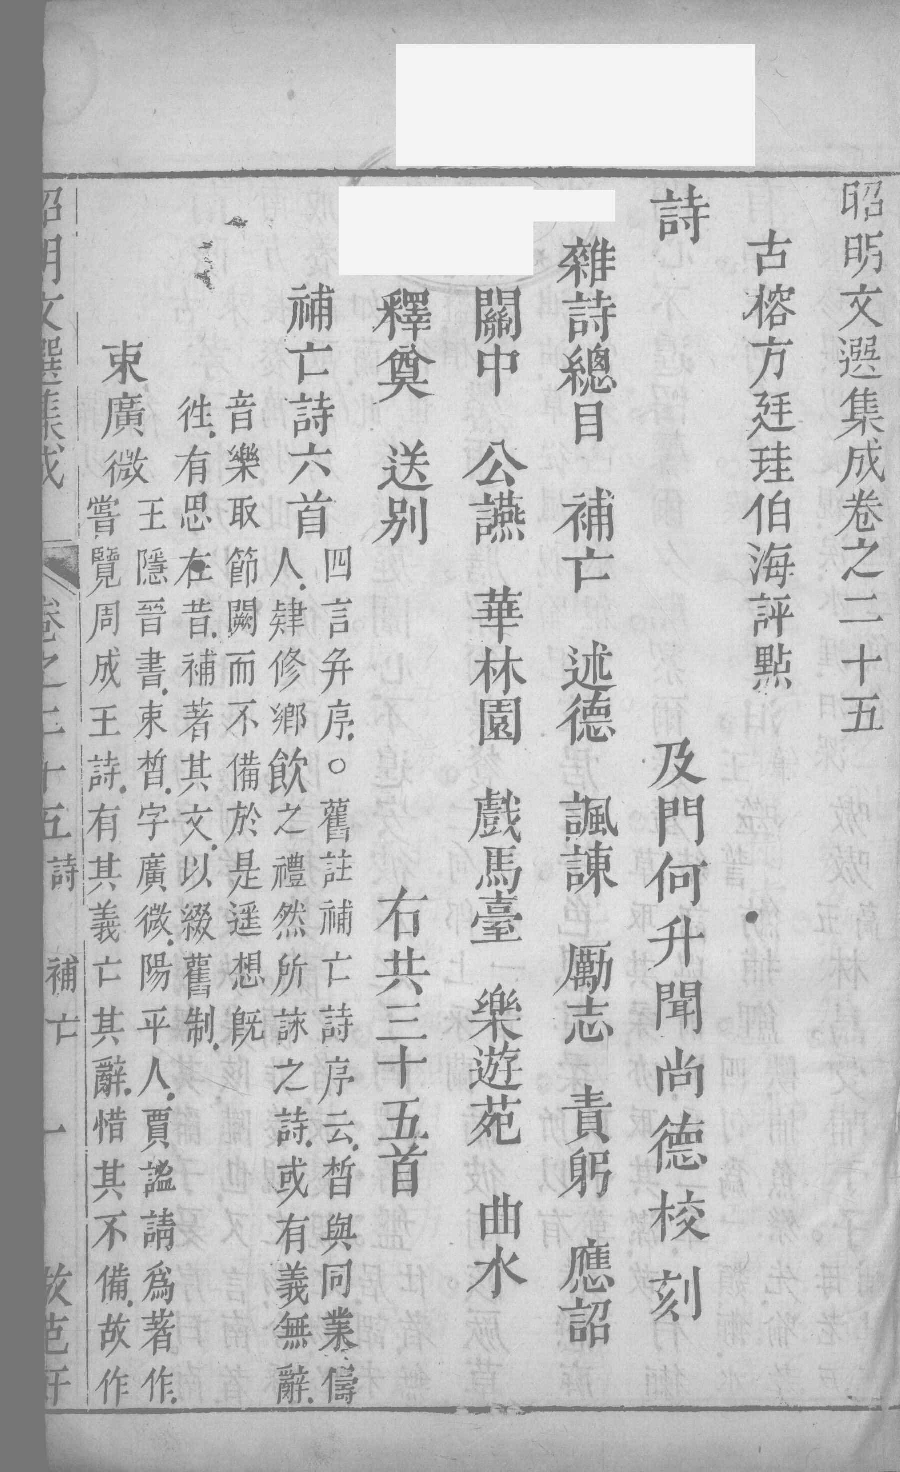 昭明文選集成卷之二十五
古榕方廷珪伯海評點
及門何升聞尚德校刻
詩
雜詩總目 補亡 述德 諷諫 勵志 責躬 應詔
關中 公讌 華林園 戲馬臺 樂遊苑 曲水
釋奠 送别 右共三十五首
補亡詩六首
四言并序。○舊註補亡詩序云皙與同業儔
人肄修鄉飲之禮然所詠之詩或有義無辭
音樂取節闕而不備於是遥想既
徃有思在昔補著其文以綴舊制
束廣微
王隱晉書束皙字廣微陽平人賈謐請爲著作
嘗覽周成王詩有其義亡其辭惜其不備故作
昭明文選集成 卷之二十五 詩 補亡 一